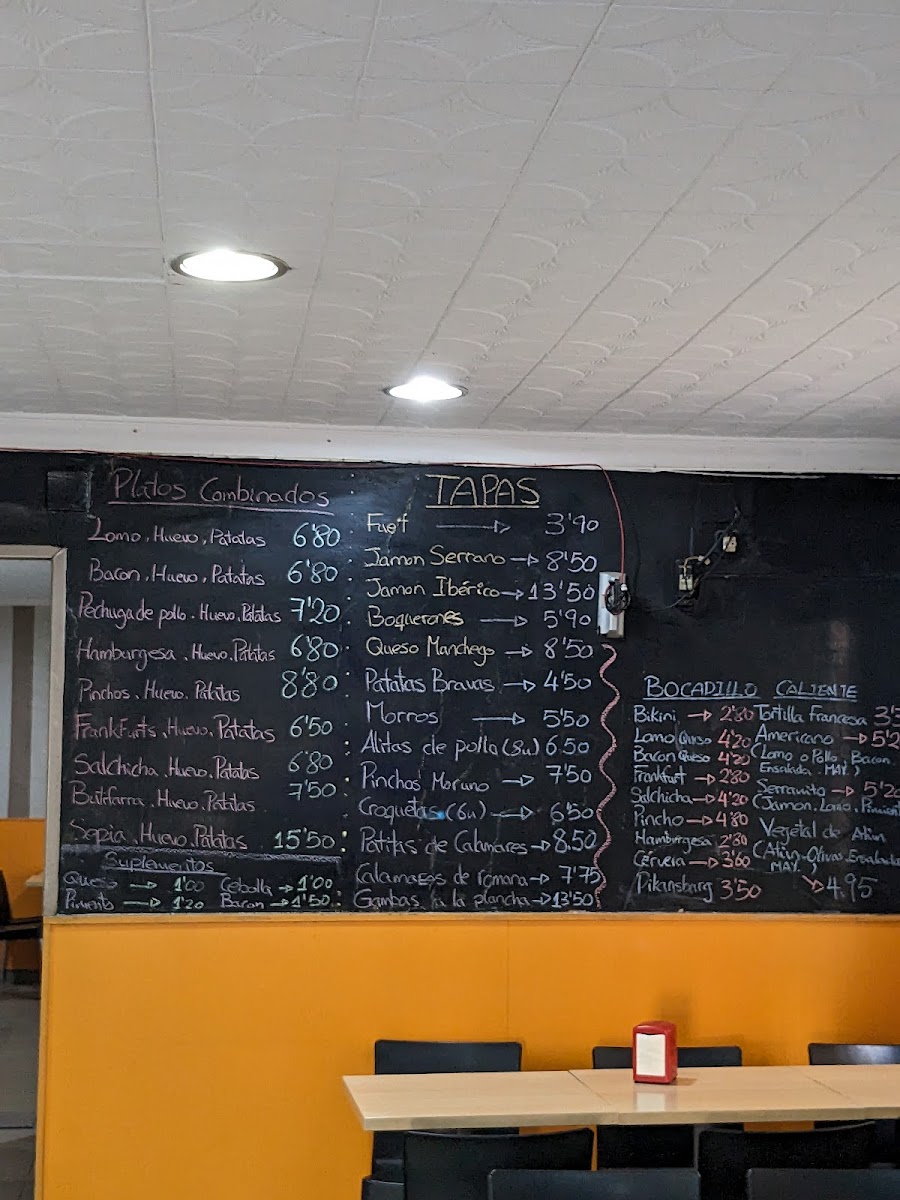 Platos Combinados
Lomo, Huevo, Patatas 6'80
Bacon, Huevo, Patatas 6'80
Pechuga de pollo. Huevo, Patatas 7'20
Hamburgesa, Huevo, Patatas 6'80
Pinchos, Huevo. Patatas 8'80
Frankfurts, Huevo, Patatas 6'50
Salchicha, Huevo, Patatas 6'80
Butifarra, Huevo, Patatas 7'50
Sepia, Huevo, Patatas 15'50
Suplementos
Queso → 1'00 Cebolla → 1'00
Pimiento → 1'20 Bacon → 1'50
TAPAS
Fuet → 3'90
Jamon Serrano → 8'50
Jamon Ibérico → 13'50
Boquerones → 5'90
Queso Manchego → 8'50
Patatas Bravas → 4'50
Morros → 5'50
Alitas de pollo (8u) 6.50
Pinchos Moruno → 7'50
Croquetas (6u) → 6'50
Patitas de Calamares → 8.50
Calamares de romana → 7'75
Gambas a la plancha → 13'50
BOCADILLO CALIENTE
Bikini → 2'80
Lomo Queso 4'20
Bacon Queso 4'20
Frankfurt → 2'80
Salchicha → 4'20
Pincho → 4'80
Hamburgesa 2'80
Cervera → 3'60
Pikansbarg 3'50
Tortilla Francesa
Americano → 5'2
(Lomo o Pollo, Bacon
Ensalada, MAY.)
Serranito → 5'20
(Jamon, Lomo, Pimient
Vegetal de Atun
(Atun-Olivas Ensalada
MAY.) → 4.95